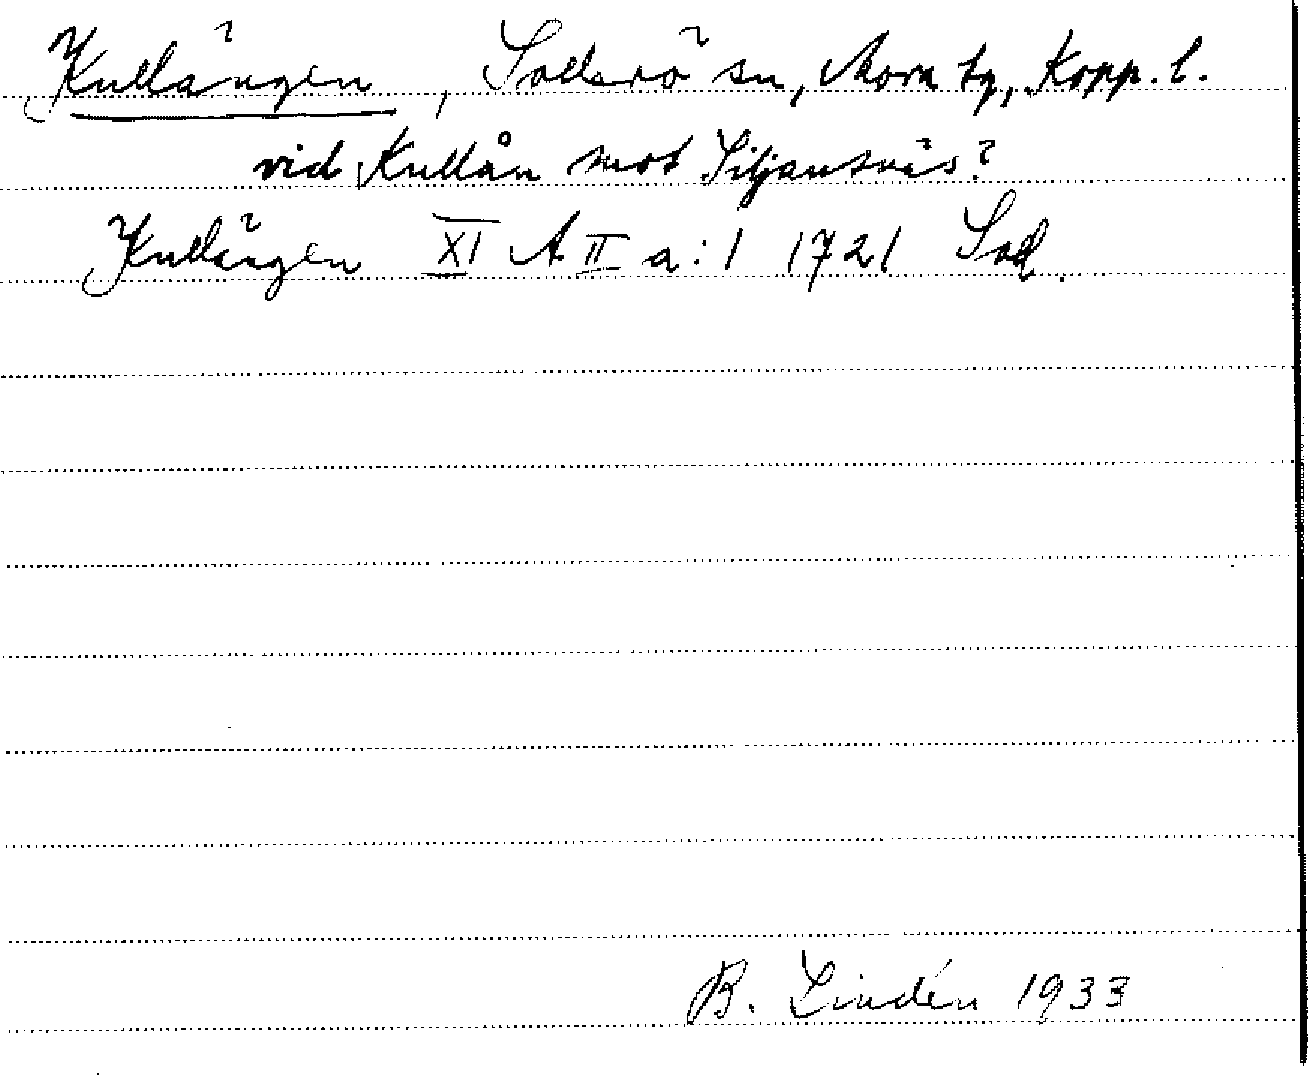 Kullängen, Sollerö sn, Mora tg, Kopp. l.
vid Kullån mot Siljansnäs?
Kullängen XI A II a:1 1721 Soll.
B. Lindén 1933